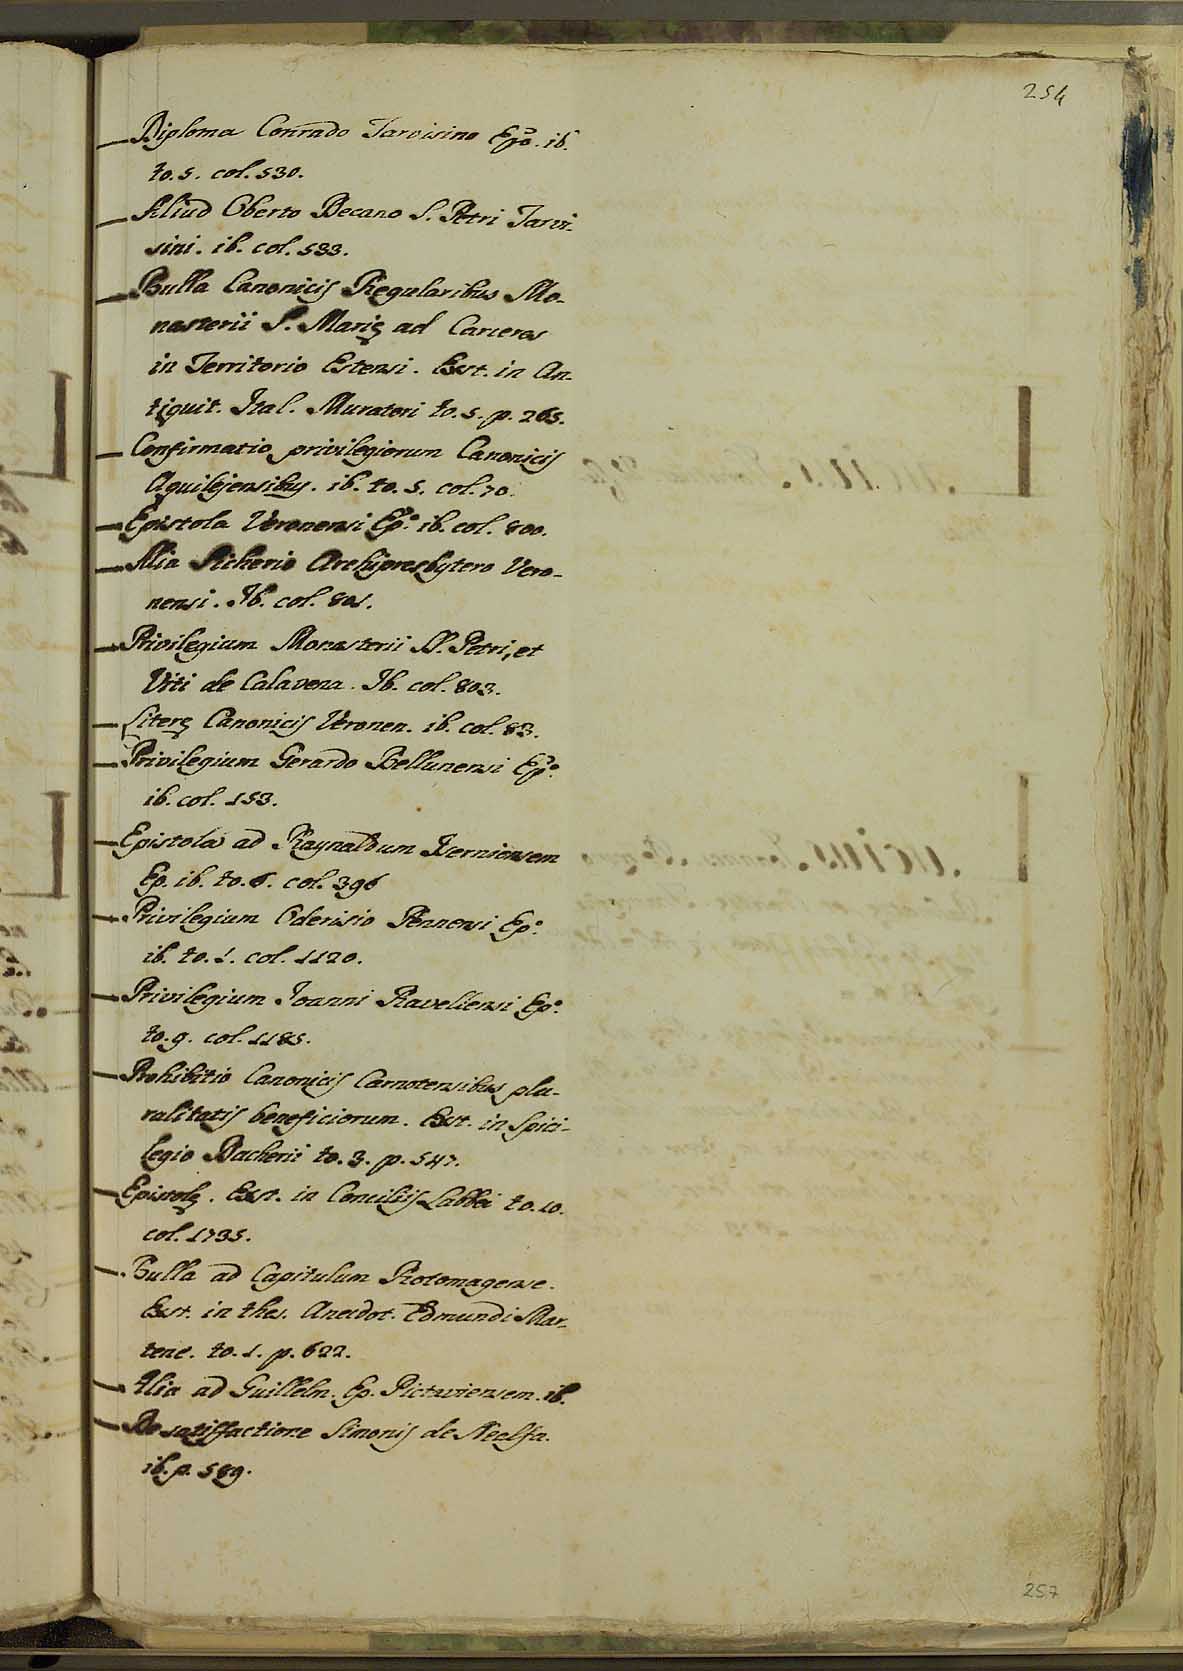 254
Diploma Conrado Tarvisino Epo. ib.
to. 5. col. 530.
Aliud Oberto Decano S. Petri Tarvi-
sini. ib. col. 533.
Bulla Canonicis Regularibus Mo-
nasterii S. Marię ad Carceres
in Territorio Estensi. Ext. in An-
tiquit. Ital. Muratori to. 5. p. 265.
Confirmatio privilegiorum Canonicis
Aquilejensibus. ib. to. 5. col. 70.
Epistola Veronensi Epo. ib. col. 800.
Alia Richerio Archipresbytero Vero-
nensi. Ib. col. 801.
Privilegium Monasterii SS. Petri, et
Viti de Calavena. Ib. col. 803.
Literę Canonicis Veronen. ib. col. 83.
Privilegium Gerardo Bellunensi Epo.
ib. col. 153.
Epistola ad Raynaldum Iserniensem
Ep. ib. to. 6. col. 396
Privilegium Oderisio Pennensi Epo.
ib. to. 1. col. 1120.
Privilegium Joanni Ravellensi Epo.
to. 9. col. 1185.
Prohibitio Canonicis Carnotensibus plu-
ralitatis beneficiorum. Ext. in Spici-
legio Dacherii to. 3. p. 547.
Epistolę. Ext. in Conciliis Labbei to. 10.
col. 1735.
Bulla ad Capitulum Rotomagense.
Ext. in thes. Anecdot. Edmundi Mar-
tene. to. 1. p. 622.
Alia ad Guillelm. Ep. Pictaviensem. ib.
De satisfactione Simonis de Neelfa.
ib. p. 589.
257